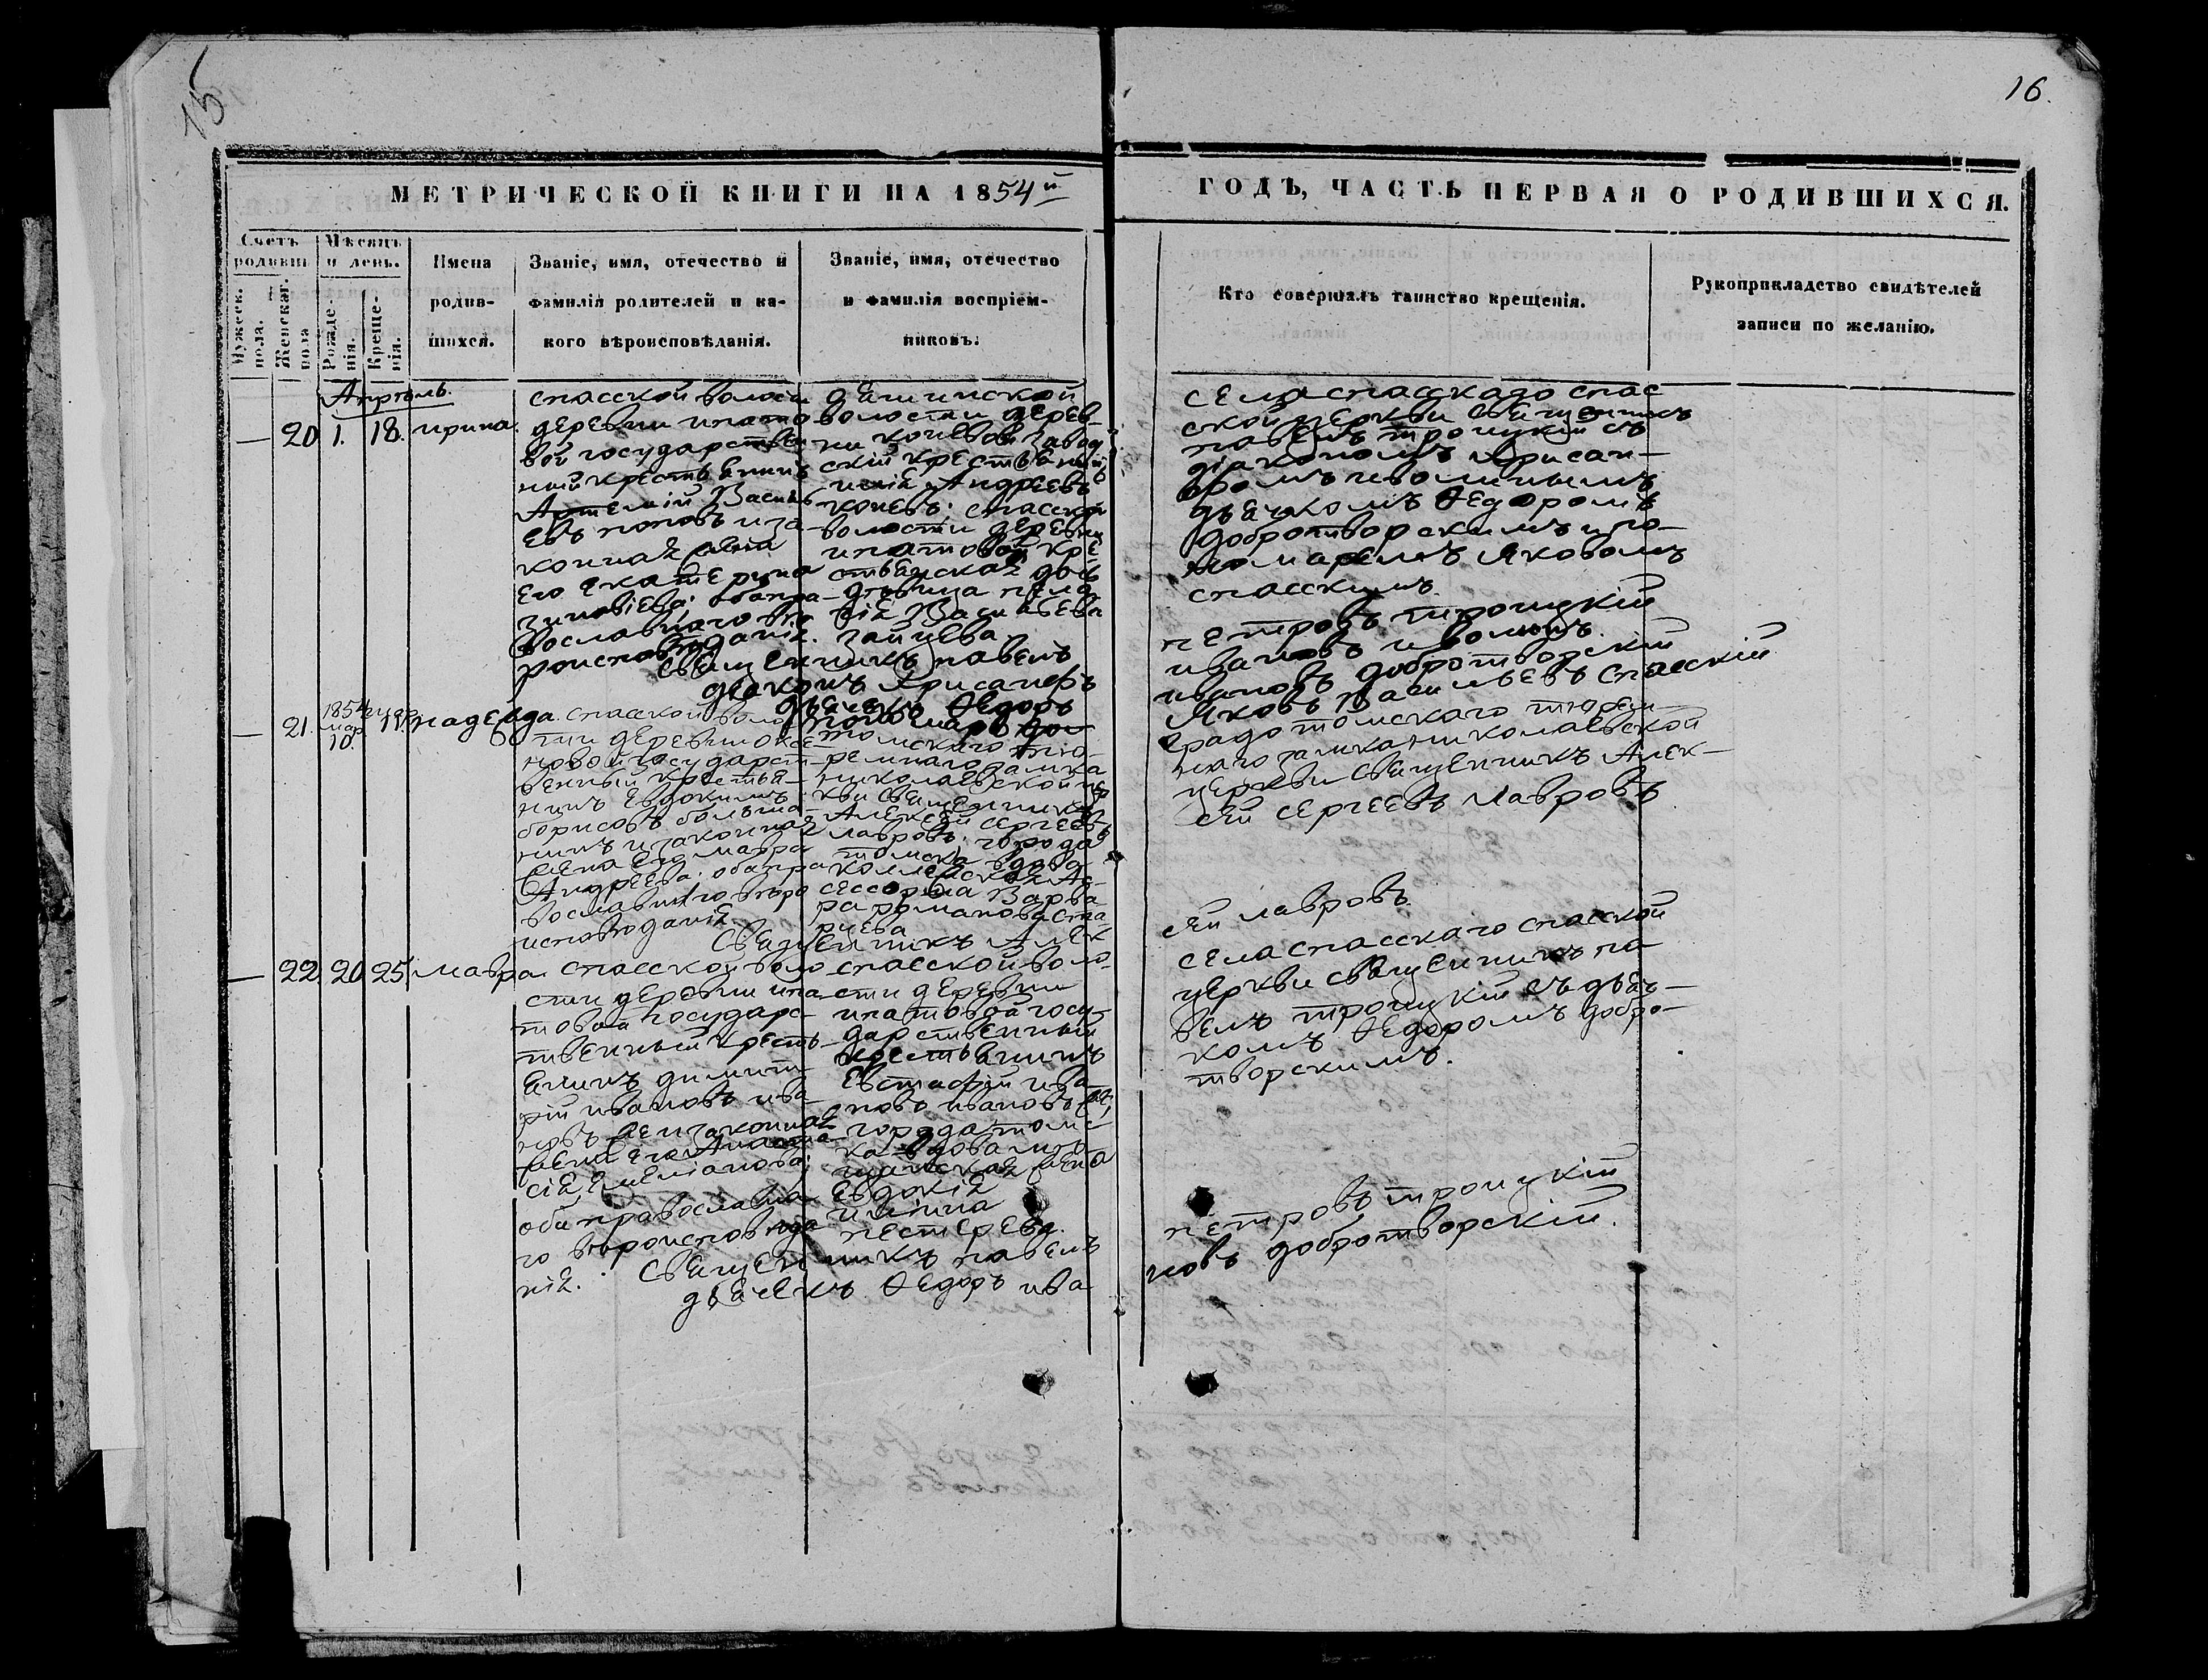 15
16.
МЕТРИЧЕСКОЙ КНИГИ НА 1854й
ГОДЪ, ЧАСТЬ ПЕРВАЯ О РОДИВШИХСЯ.
Счетъ родивш
Мужеск. пола.
Женскаг. пола
Мѣсяцъ и день.
Рожде-нія.
Креще-нія.
Имена
родив-
шихся.
Званіе, имя, отечество и
фамилія родителей и ка-
кого вѣроисповѣданія.
Званіе, имя, отечество
и фамилія воспріем-
никовъ:
Кто совершалъ таинство крещенія.
Рукоприкладство свидѣтелей
записи по желанію.
Апрѣль.
— 20. 1. 18. ирина.
спасской волости
деревни ипато
вой государствен
ный крестьянинъ
Артемій Василь
евъ поповъ и за-
конная жена
его екатерина
зиновіева; оба пра-
вославнаго вѣ
роисповѣданія.
волости дерев-
ни
скій крестьянинъ
Андреевъ
спасской
волости деревни
ипатовой кре
стьянская дочь
дѣвица пела
гія Васильева
зайцева
священникъ павелъ
діаконъ Хрисанфъ
дьячекъ Ѳедоръ
пономарь
села спасскаго спас
ской церкви священникъ
павелъ троицкій съ
діакономъ Хрисан-
фомъ иволинымъ
дьячкомъ Ѳедоромъ
добротворскимъ и по-
номаремъ Яковомъ
спасскимъ.
петровъ троицкій
ивановъ иволинъ.
ивановъ добротворскій
Яковъ Васильевъ спасскій
— 21. 1854 мар 10. 11. надежда.
спасской воло
сти деревни
новой государст-
венный крестья-
нинъ Евдокимъ
борисовъ больша-
нинъ и законная
жена его мавра
Андреева; оба пра
вославнаго вѣро
исповѣданія.
томскаго тю-
ремнаго замка
николаевской цер
кви священникъ
Алексѣй сергѣевъ
лавровъ; города
томска вдова
коллежская Ас-
сессорша Варва-
ра романова
священникъ Алек
градо томскаго тюрем-
наго замка николаевской
церкви священникъ Алек-
сѣй сергѣевъ лавровъ
сѣй лавровъ.
— 22. 20. 25. мавра
спасской воло-
сти деревни ипа-
товой государс-
твенный кресть-
янинъ димит-
рій ивановъ ива-
новъ и законная
жена его Анаста-
сія Емеліанова;
оба православна
го вѣроисповѣда
нія.
спасской воло-
сти деревни
ипатовой госу-
дарственный
крестьянинъ
Евстафій ива
новъ ивановъ
города томс
ка вдова мѣ-
щанская жена
Евдокія
нестерева.
священникъ павелъ
дьячекъ Ѳедоръ ива
села спасскаго спасской
церкви священникъ па
велъ троицкій съ дьяч-
комъ Ѳедоромъ добро-
творскимъ.
петровъ троицкій
новъ добротворскій.